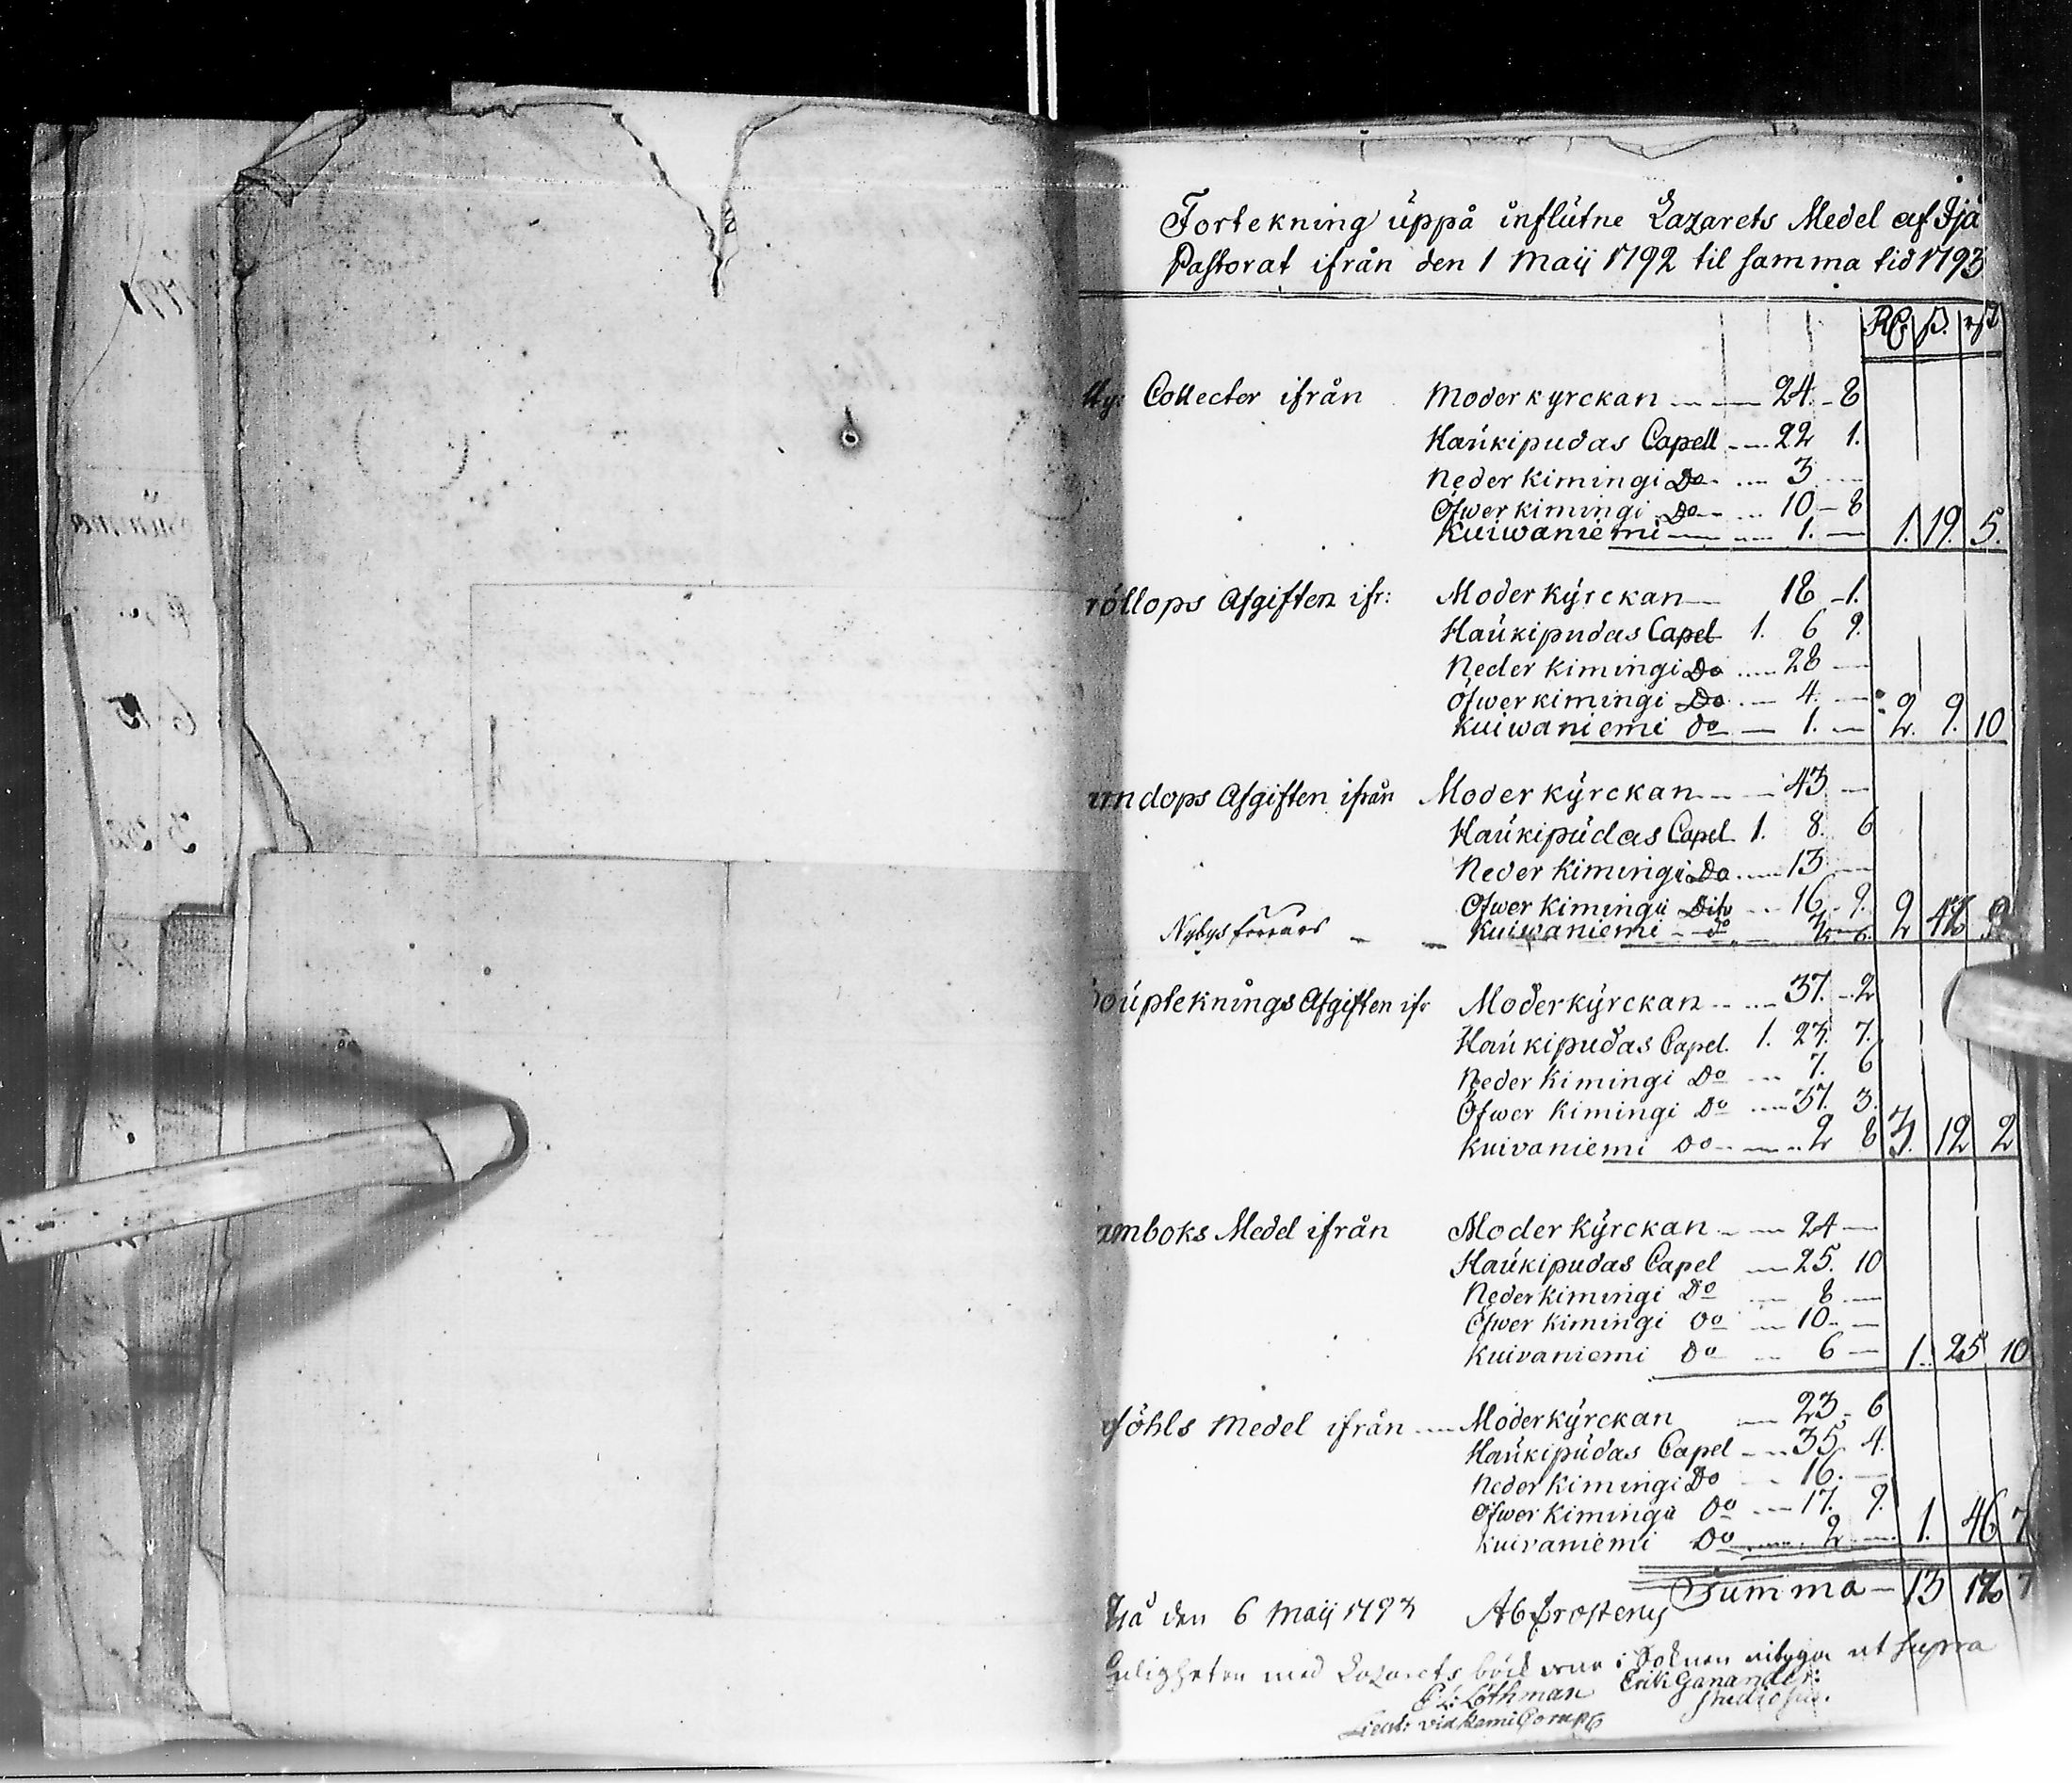 Fortekning uppå influtne Lazarets Medel af Ijå
Pastorat ifrån den 1 Maij 1792 til samma tid 1793
Collecter ifrån Moderkyrckan 24. 8
Haukipudas Capell 22 1.
Neder kimingi Do 3
Öfwer kimingi Do 10 - 8
Kuiwaniemi 1. 1. 19. 5.
röllops Afgiften ifr: Moder kyrckan 18 1.
Haukipudas Capel 1. 6 9.
Neder kimingi Do 28
Öfwer kimingi Do 4.
Kuiwaniemi do 1. 2. 9. 10
undops Afgiften ifrån Moder kyrckan 43
Haukipudas Capel 1. 8. 6
Neder kimingi Do 13
Öfwer kimingi Dito 16. 9.
Kuiwaniemi do 2
ouptekninings Afgiften ifr Moderkyrckan 37. 2
Haukipudas Capel. 1. 23. 7.
Neder kimingi Do 7. 6
Öfwer kimingi Do 37. 3.
Kuivaniemi Do 2 8 3. 12 2
amboks Medel ifrån Moder kyrckan 24
Haukipudas Capel 25. 10
Neder kimingi Do 8
Öfwer kimingi Do 10
Kuivaniemi Do 6 1. 25 10
föhls Medel ifrån Moderkyrckan 23 - 6
Haukipudas Capel 35. 4.
Neder kimingi Do 16.
Öfwer kimingi Do 17. 9.
Kuivaniemi Do 2 1. 46 7
Summa 13 7
Ijå den 6 Maij 1793
med Lazarets ut supra
Löthman Erik Ganander
1791
Summa